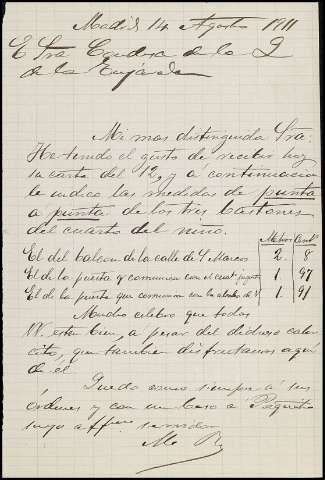 Madrid 14 Agosto 1911
E Sra Condesa de la
de la
Mi mas distinguida Sra:
He tenido el gusto de recibir hoy
su carta del 12, y a continuacion
le indico las medidas de punta
a punta de los tres bastones
del cuarto del niño.
Metros Cents
El del balcon de la calle de S. Marcos 2. 8
El de la puerta q comunica con el cuarto 1. 97
El de la puerta que comunica con la alcoba de V 1. 91
Mucho celebro que todos
Vs esten bien, a pesar del dichoso calor
cito, que tambien disfrutamos aqui
de él.
Quedo como siempre a sus
órdenes y con un beso a Paquito
suyo affmo servidor